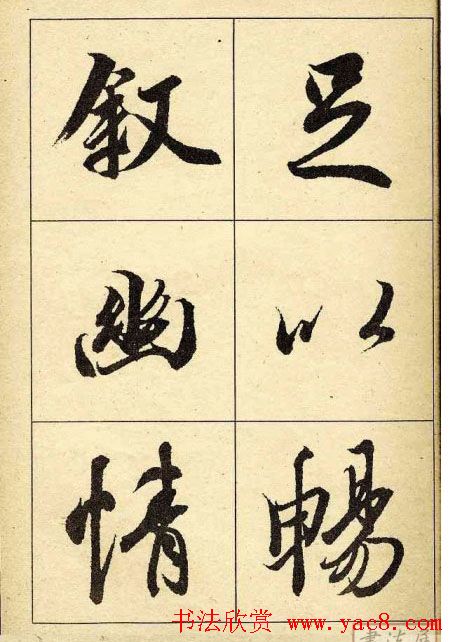 足以暢
敘幽情
书法欣赏 www.yac8.com